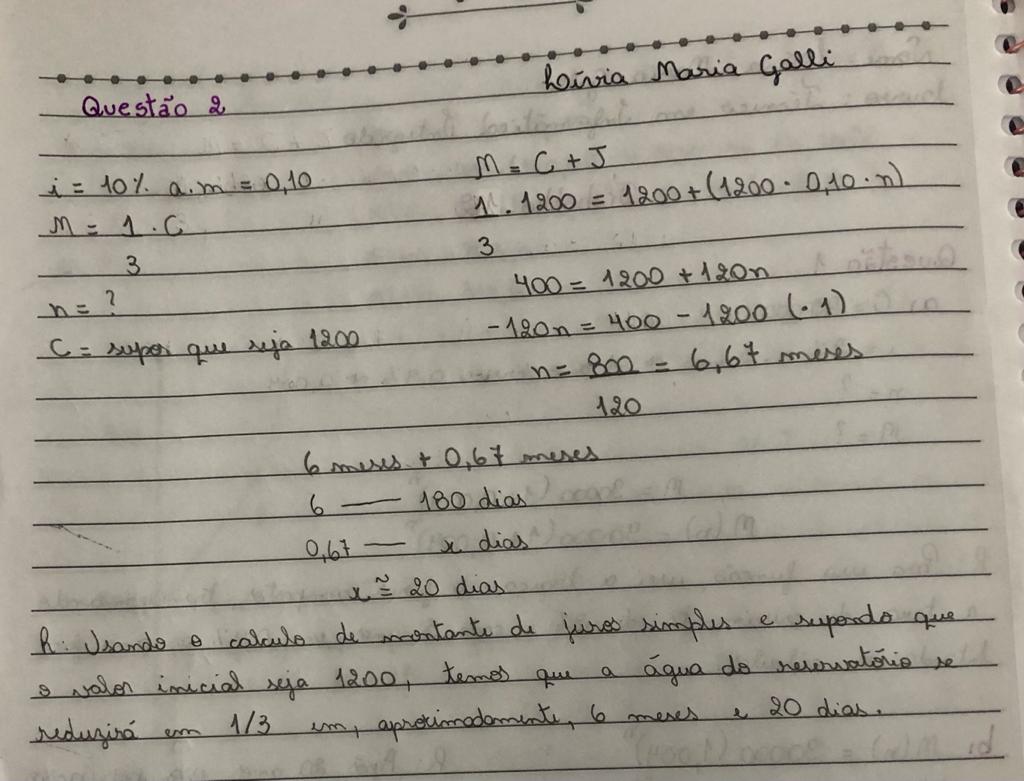 Loívia Maria Galli
Questão 2
i = 10% a.m = 0,10
M = C + J
M = 1 . C
3
1 . 1200 = 1200 + (1200 . 0,10 . n)
3
n = ?
400 = 1200 + 120n
C = supor que seja 1200
-120n = 400 - 1200 (. 1)
n = 800 = 6,67 meses
120
6 meses + 0,67 meses
6 — 180 dias
0,67 — x dias
x ≅ 20 dias
R: Usando o calculo de montante de juros simples e supondo que
o valor inicial seja 1200, temos que a água do reservatório se
reduzirá em 1/3 em, aproximadamente, 6 meses e 20 dias.